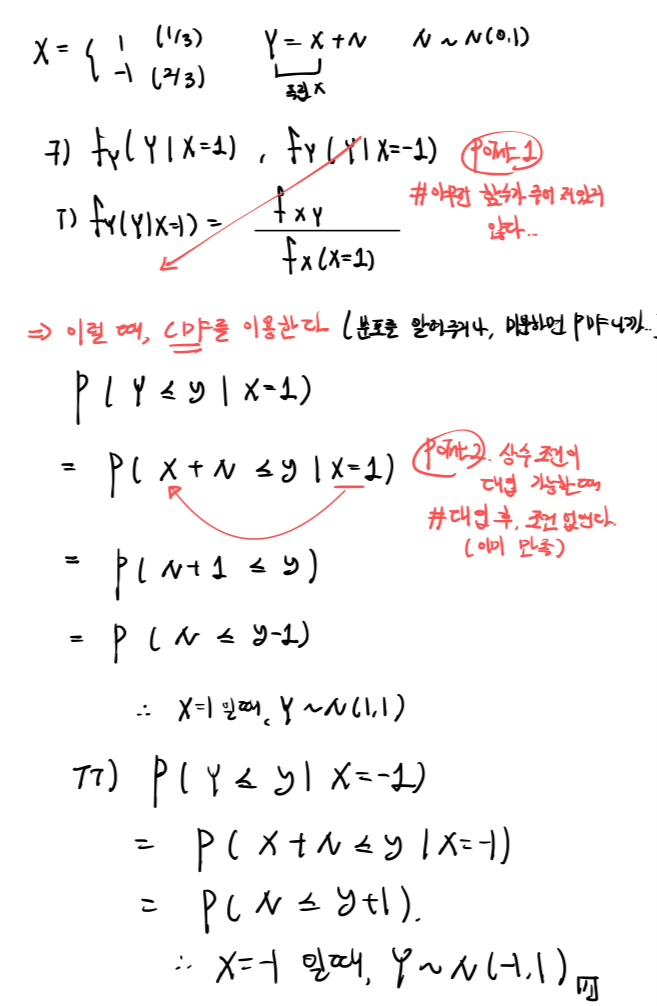 X = { 1 (1/3) Y = X + N N ~ N(0,1)
-1 (2/3) 독립 X
구) fY(Y|X=1) , fY(Y|X=-1) Point 1
# 아무런 함수가 주어 져있지
않다...
I) fY(Y|X=1) = fXY / fX(X=1)
⇒ 이럴 때, CDF를 이용한다 (분포를 알려주거나, 미분하면 PDF니까..)
P(Y ≤ y | X=1)
= P(X + N ≤ y | X=1) Point 2. 상수 조건이
대입 가능한때
# 대입 후, 조건 없앤다.
(이미 만족)
= P(N+1 ≤ y)
= P(N ≤ y-1)
∴ X=1 일때, Y ~ N(1,1)
II) P(Y ≤ y | X=-1)
= P(X + N ≤ y | X=-1)
= P(N ≤ y+1).
∴ X=-1 일때, Y ~ N(-1,1)